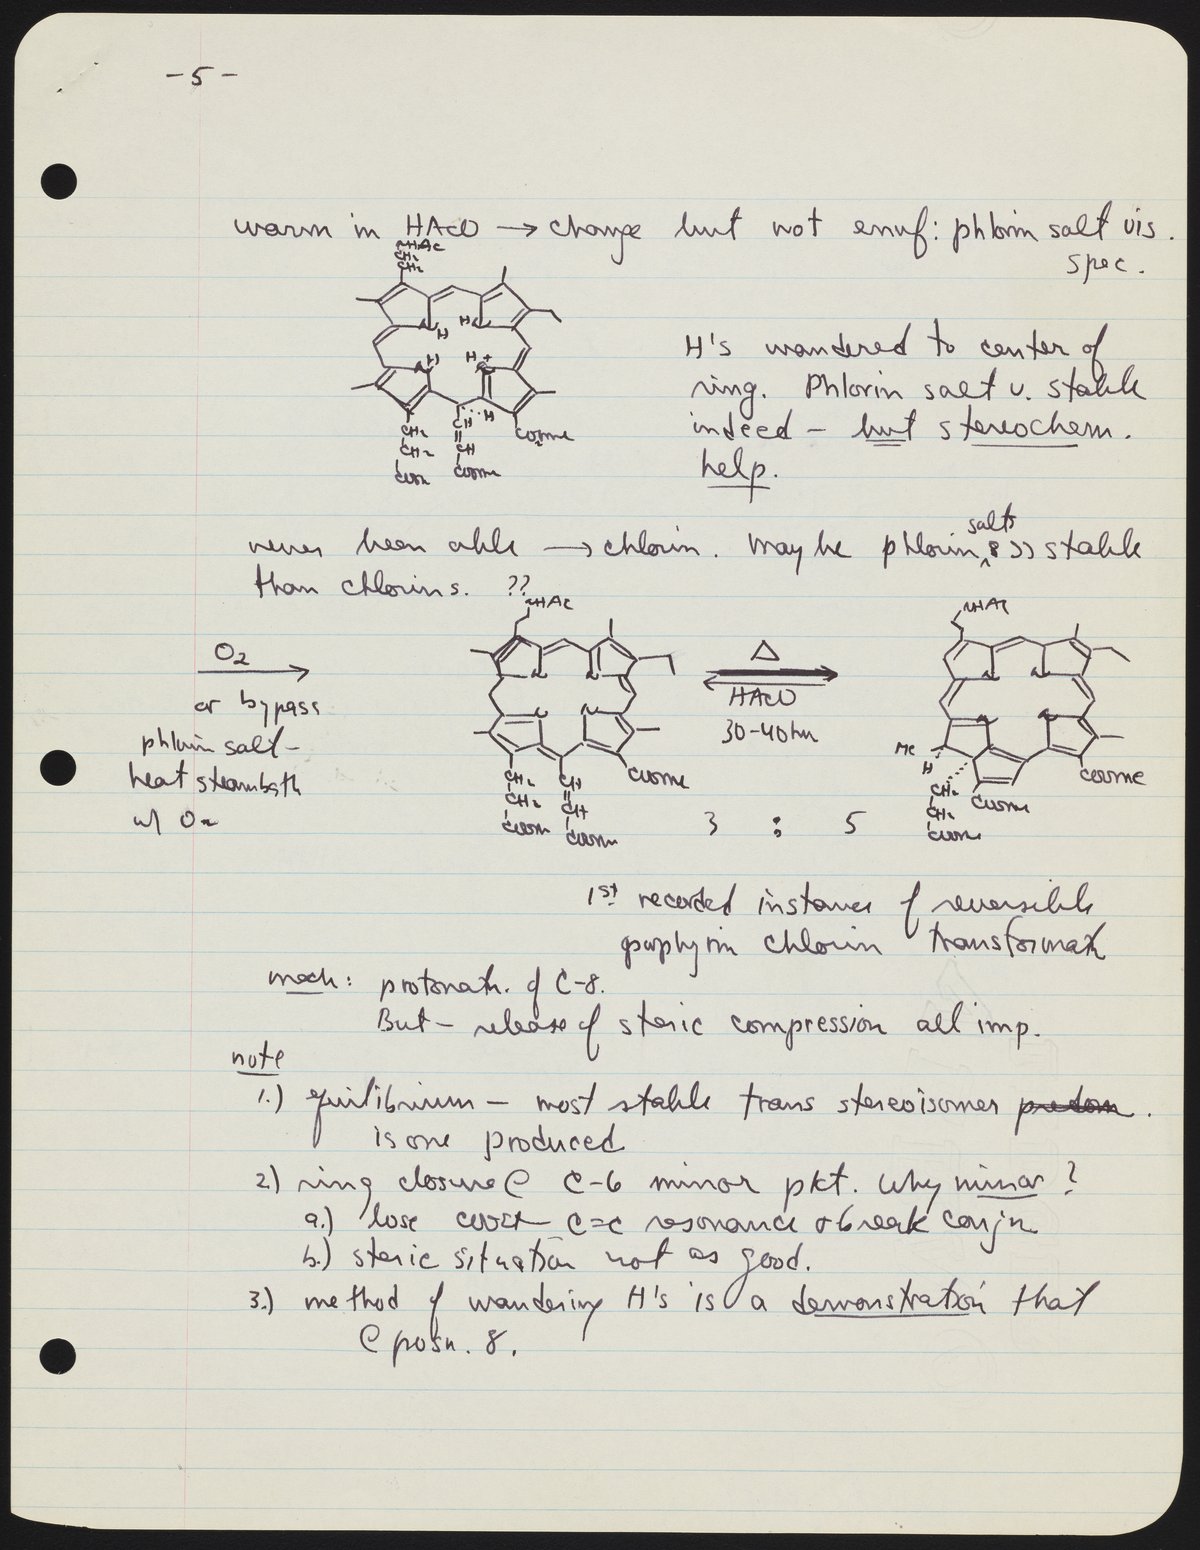 -5-
warm in HAcO → change but not enuf: phlorin salt vis.
spec.
NHAc
CH₂
CH₂
H H
H H+
H
CH₂ CH CO₂Me
CH₂ CH
COOMe COOMe
H's wandered to center of
ring. Phlorin salt v. stable
indeed - but stereochem.
help.
never been able → chlorin. Maybe phlorin salts >> stable
than chlorins. ??
O₂
or bypass
phlorin salt-
heat steambath
w/ O₂
NHAc
N N
N N
CH₂ CH COOMe
CH₂ CH
COOMe COOMe
Δ
HAcO
30-40hrs
3 : 5
NHAc
N N
N N
Me
H
CH₂ COOMe COOMe
CH₂
COOMe
1st recorded instance of reversible
porphyrin chlorin transformatn
mech: protonatn. of C-8.
But - release of steric compression all imp.
note
1.) equilibrium - most stable trans stereoisomer predom.
is one produced
2.) ring closure @ C-6 minor pkt. Why minor?
a.) lose C=C resonance & break conjn
b.) steric situation not as good.
3.) method of wandering H's is a demonstration that
@ posn. 8.